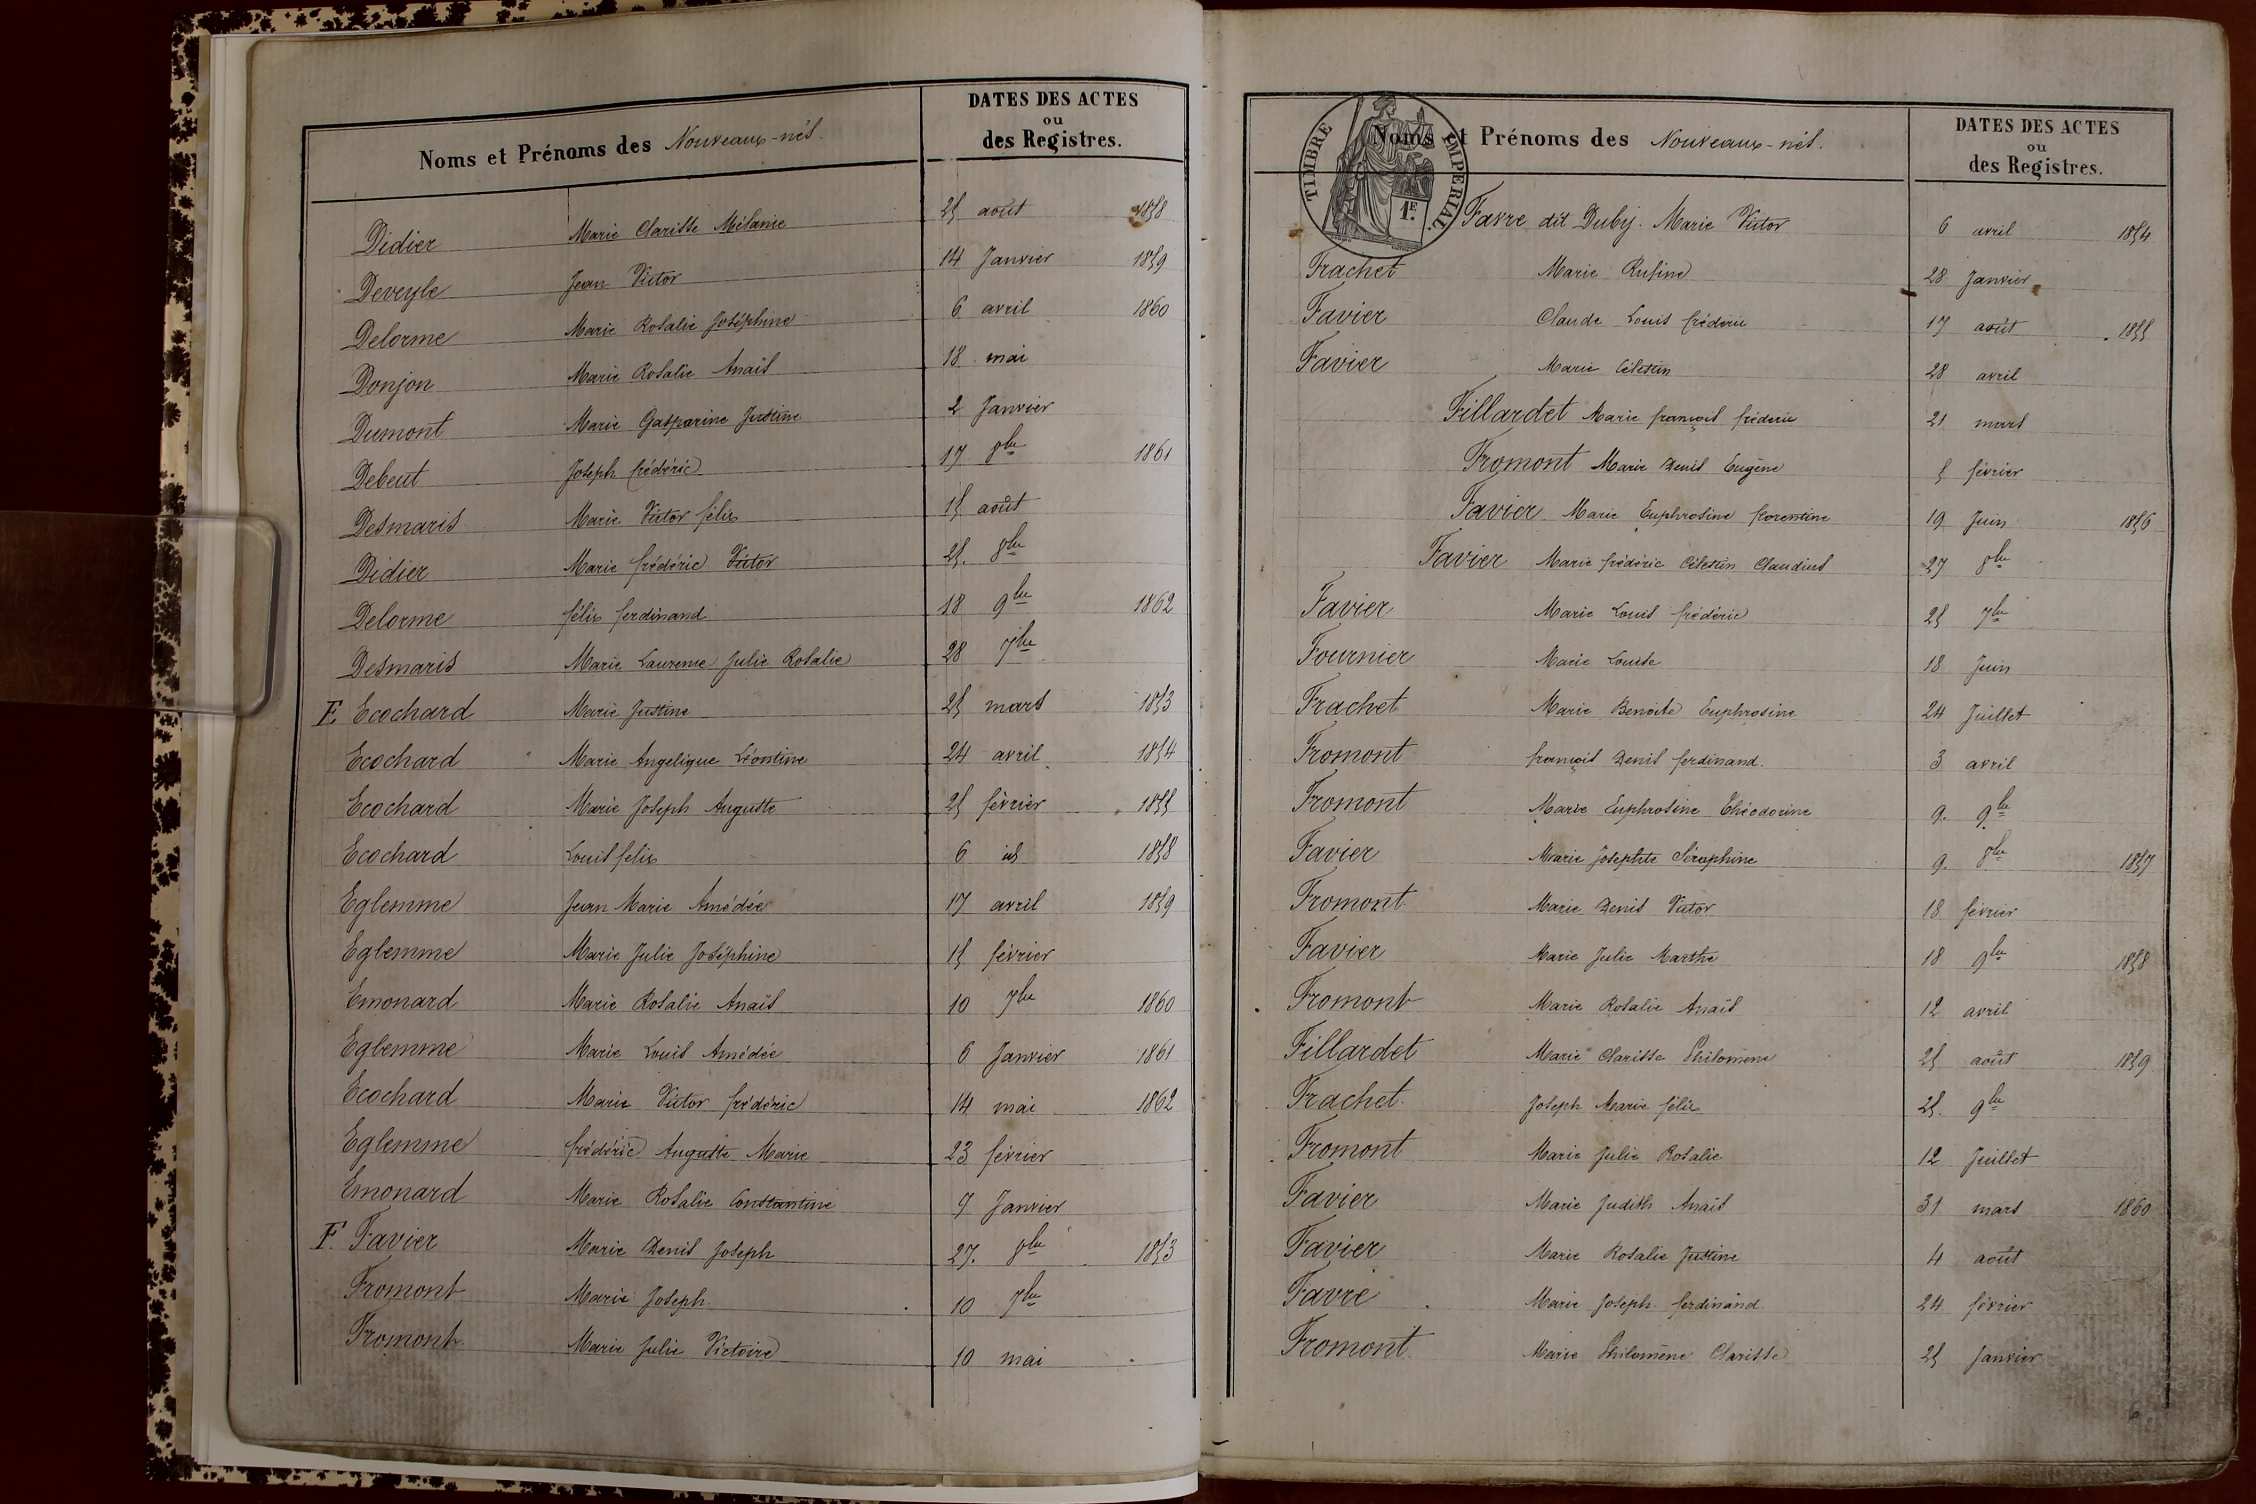 Noms et Prénoms des Nouveaux-nés.
DATES DES ACTES
ou
des Registres.
Didier Marie Clarisse Mélanie 25 août 1858
Deveyle Jean Victor 14 Janvier 1859
Delorme Marie Rosalie Joséphine 6 avril 1860
Donjon Marie Rosalie Anaïs 18 mai
Dumont Marie Gasparine Justine 2 Janvier
Debeut Joseph frédéric 17 8bre 1861
Desmaris Marie Victor félix 15 août
Didier Marie frédéric Victor 25. 8bre
Delorme félix ferdinand 18 9bre 1862
Desmaris Marie Laurence Julie Rosalie 28 7bre
E. Ecochard Marie Justine 25 mars 1853
Ecochard Marie Angelique Léontine 24 avril 1854
Ecochard Marie Joseph Auguste 25 février 1855
Ecochard Louis félix 6 id 1858
Eglemme Jean Marie Amédée 17 avril 1859
Eglemme Marie Julie Joséphine 15 février
Emonard Marie Rosalie Anaïs 10 7bre 1860
Eglemme Marie Louis Amédée 6 Janvier 1861
Ecochard Marie Victor frédéric 14 mai 1862
Eglemme frédéric Auguste Marie 23 février
Emonard Marie Rosalie Constantine 9 Janvier
F. Favier Marie Denis Joseph 27. 8bre 1853
Fromont Marie Joseph 10 7bre
Fromont Marie Julie Victoire 10 mai
TIMBRE IMPERIAL.
1E.
Noms et Prénoms des Nouveaux-nés.
DATES DES ACTES
ou
des Registres.
Favre dit Duby. Marie Victor 6 avril 1854
Frachet Marie Rufine 28 Janvier
Favier Claude Louis frédéric 17 août 1855
Favier Marie Célestin 28 avril
Fillardet Marie françois fréderic 21 mars
Fromont Marie Denis Eugène 5 février
Favier Marie Euphrosine florentine 19 Juin 1856
Favier Marie frédéric Célestin Claudius 27 8bre
Favier Marie Louis frédéric 25 7bre
Fournier Marie Louise 18 Juin
Frachet Marie Benoite Euphrosine 24 Juillet
Fromont françois Denis ferdinand. 3 avril
Fromont Marie Euphrosine Théodorine 9. 9bre
Favier Marie Josephte Séraphine 9. 8bre 1857
Fromont Marie Denis Victor 18 février
Favier Marie Julie Marthe 18 9bre 1858
Fromont Marie Rosalie Anaïs 12 avril
Fillardet Marie Clarisse Philomène 25 août 1859
Frachet Joseph Marie félix 25. 9bre
Fromont Marie Julie Rosalie 12 Juillet
Favier Marie Judith Anaïs 31 mars 1860
Favier Marie Rosalie Justine 4 août
Favre Marie Joseph ferdinand 24 février
Fromont Marie Philomène Clarisse 25 Janvier
6